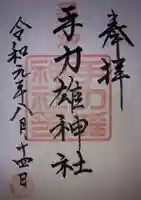 奉拝
手力雄神社
令和元年八月十四日